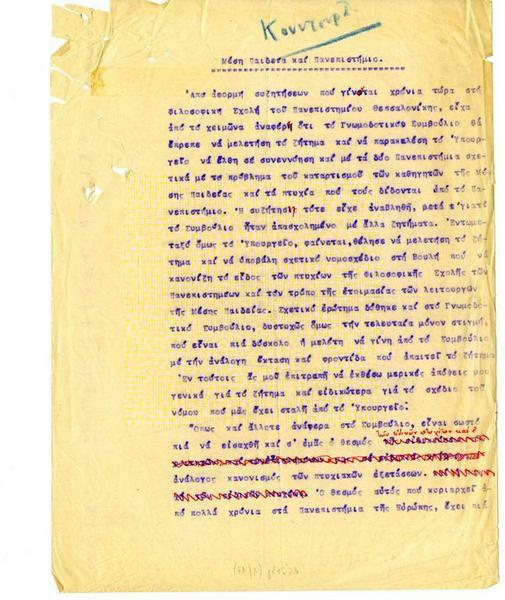 Κουντουρ
Μέση Παιδεία καί Πανεπιστήμιο.
Ἀπό ἀφορμή συζητήσεων πού γίνεται χρόνια τώρα στή
Φιλοσοφική Σχολή τοῦ Πανεπιστημίου Θεσσαλονίκης, εἶχα
ἀπό τό χειμῶνα ἀναφέρη ὅτι τό Γνωμοδοτικόν Συμβούλιο θά
ἔπρεπε νά μελετήση τό ζήτημα καί νά παρακαλέση τό Ὑπουρ-
γεῖο νά ἔλθη σέ συνεννόηση καί μέ τά δύο Πανεπιστήμια σχε-
τικά μέ τό πρόβλημα τοῦ καταρτισμοῦ τῶν καθηγητῶν τῆς Μέ-
σης Παιδείας καί τά πτυχία πού τούς δίδονται ἀπό τό Πα-
νεπιστήμιο. Ἡ συζήτηση τότε εἶχε ἀναβληθῆ, γιατί
τό Συμβούλιο ἦταν ἀπασχολημένο μέ ἄλλα ζητήματα. Ἐντωμε-
ταξύ ὅμως τό Ὑπουργεῖο, φαίνεται, θέλησε νά μελετήση τό ζή-
τημα καί νά ὑποβάλη σχετικό νομοσχέδιο στή Βουλή πού νά
κανονίζη τό εἶδος τῶν πτυχίων τῆς Φιλοσοφικῆς Σχολῆς τῶν
Πανεπιστημίων καί τόν τρόπο τῆς ἑτοιμασίας τῶν λειτουργῶν
τῆς Μέσης Παιδείας. Σχετικό ἐρώτημα δόθηκε καί στό Γνωμοδο-
τικό Συμβούλιο, δυστυχῶς ὅμως τήν τελευταία μόνον στιγμή,
πού εἶναι πιά δύσκολο ἡ μελέτη νά γίνη ἀπό τό Συμβούλιο
μέ τήν ἀνάλογη ἔκταση καί φροντίδα πού ἀπαιτεῖ τό ζήτημα
Ἐν τούτοις ἄς μοῦ ἐπιτραπῆ νά ἐκθέσω μερικές ἀπόψεις μου
γενικά γιά τό ζήτημα καί εἰδικώτερα γιά τό σχέδιο τοῦ
νόμου πού μᾶς ἔχει σταλῆ ἀπό τό Ὑπουργεῖο.
Ὅπως καί ἄλλοτε ἀνάφερα στό Συμβούλιο, εἶναι σωστό
πιά νά εἰσαχθῆ καί σ' ἐμᾶς ὁ θεσμός τῶν εἰδικῶν πτυχίων καί ὁ
ἀνάλογος κανονισμός τῶν πτυχιακῶν ἐξετάσεων.
Ὁ θεσμός αὐτός πού κυριαρχεῖ ἀ-
πό πολλά χρόνια στά Πανεπιστήμια τῆς Εὐρώπης, ἔχει πιά